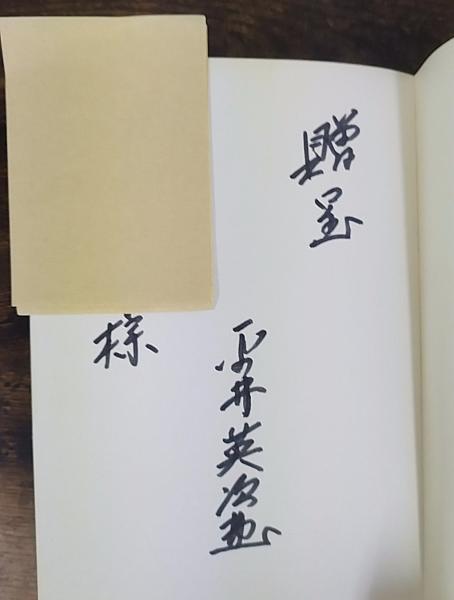 贈呈
平井英次
様